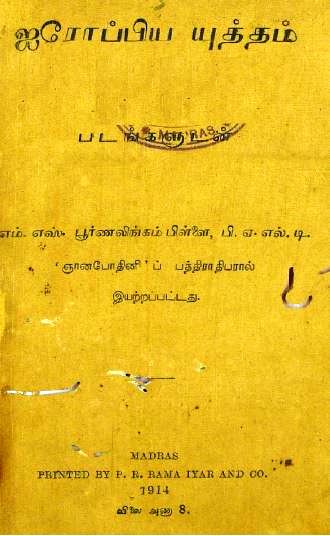 ஐரோப்பிய யுத்தம்
படங்களுடன்
MADRAS
எம். எஸ். பூர்ணலிங்கம் பிள்ளை, பி. ஏ. எல். டி.
'ஞானபோதினி' ப் பத்திராதிபரால்
இயற்றப்பட்டது.
MADRAS
PRINTED BY P. R. RAMA IYAR AND CO.
1914
விலை அணா 8.